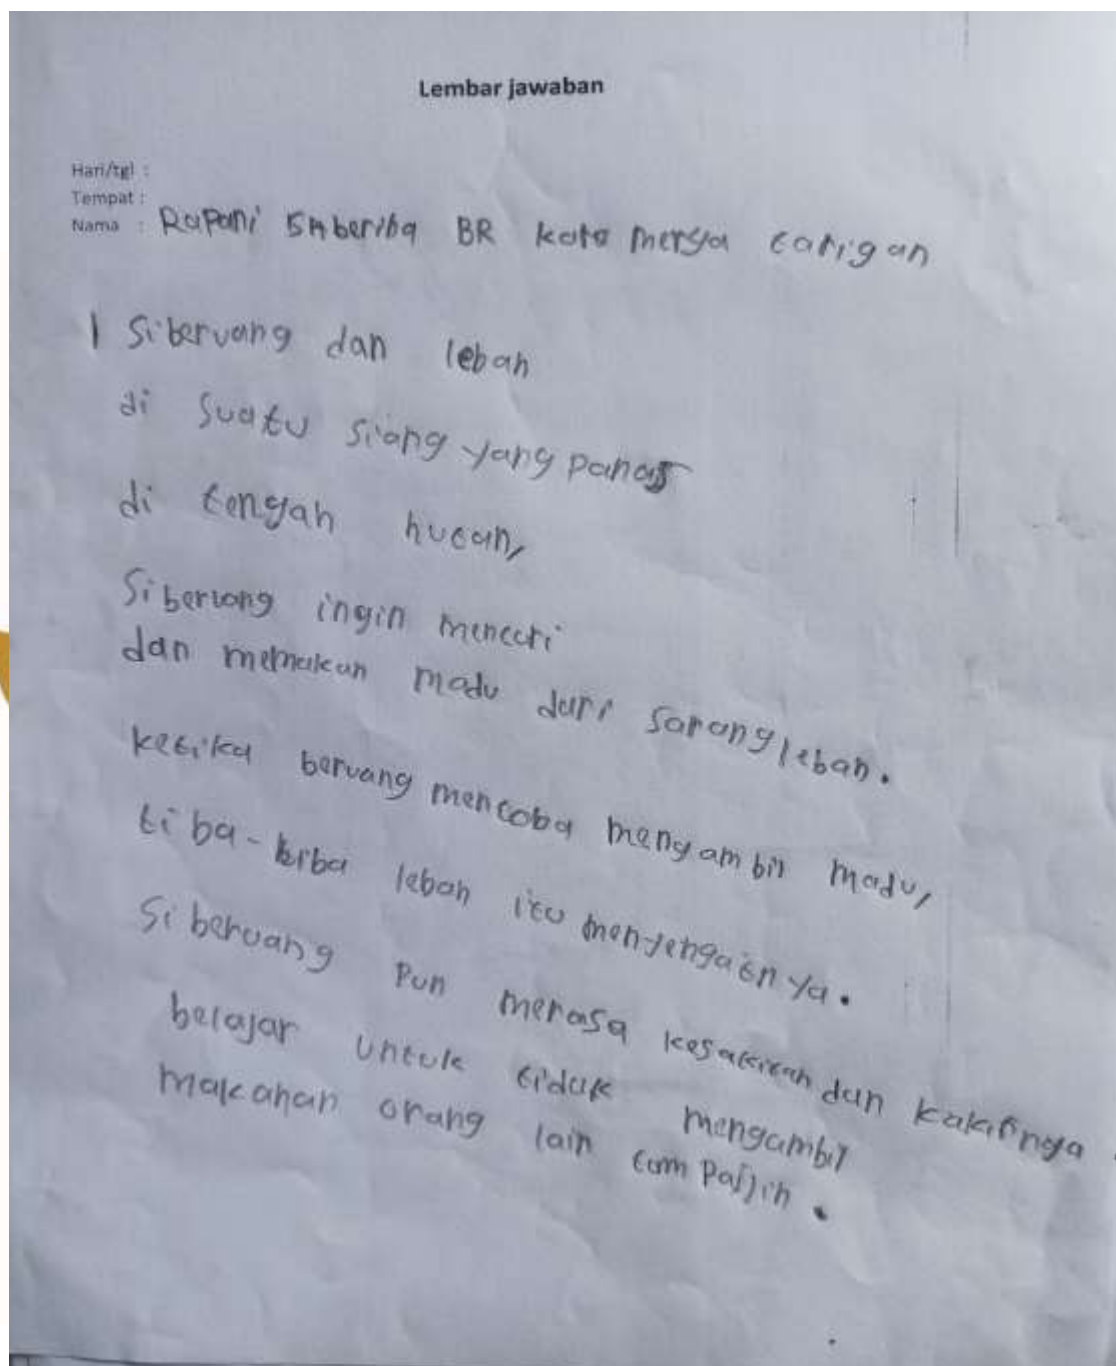 Lembar jawaban
Hari/tgl :
Tempat :
Nama : Rapani BR karo merga tarigan
1 Siberuang dan lebah
di suatu siang yang panas
di tengah hutan,
Siberuang ingin mencuri
dan memakan madu dari sarang lebah.
ketika beruang mencoba mengambil madu,
tiba-tiba lebah itu menyengatnya.
Si beruang pun merasa kesakitan dan
belajar untuk tidak mengambil
makanan orang lain